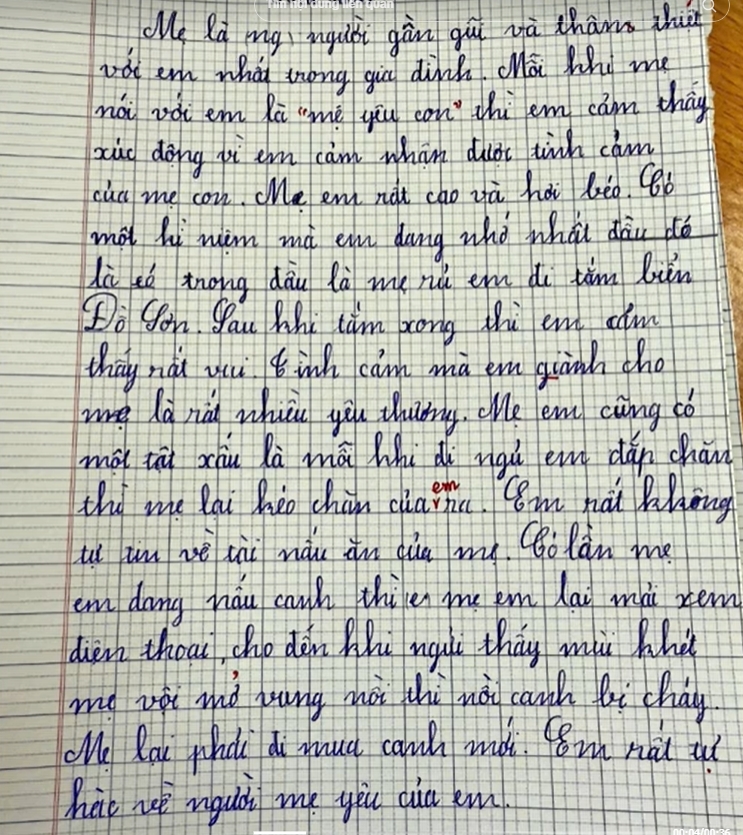 Tìm nội dung liên quan
Mẹ là người gần gũi và thâm thiết
với em nhất trong gia đình. Mỗi khi mẹ
nói với em là "mẹ yêu con" thì em cảm thấy
xúc động vì em cảm nhận được tình cảm
của mẹ con. Mẹ em rất cao và hơi béo. Có
một kỉ niệm mà em đang nhớ nhất đâu đó
là có trong đầu là mẹ rủ em đi tắm biển
Đồ Sơn. Sau khi tắm xong thì em cảm
thấy rất vui. Tình cảm mà em giành cho
mẹ là rất nhiều yêu thương. Mẹ em cũng có
một tật xấu là mỗi khi đi ngủ em đắp chăn
thì mẹ lại kéo chăn của em ra. Em rất không
tự tin về tài nấu ăn của mẹ. Có lần mẹ
em đang nấu canh thì mẹ em lại mải xem
điện thoại, cho đến khi ngửi thấy mùi khét
mẹ vội mở vung nồi thì nồi canh bị cháy.
Mẹ lại phải đi mua canh mới. Em rất tự
hào về người mẹ yêu của em.
00:04/00:36